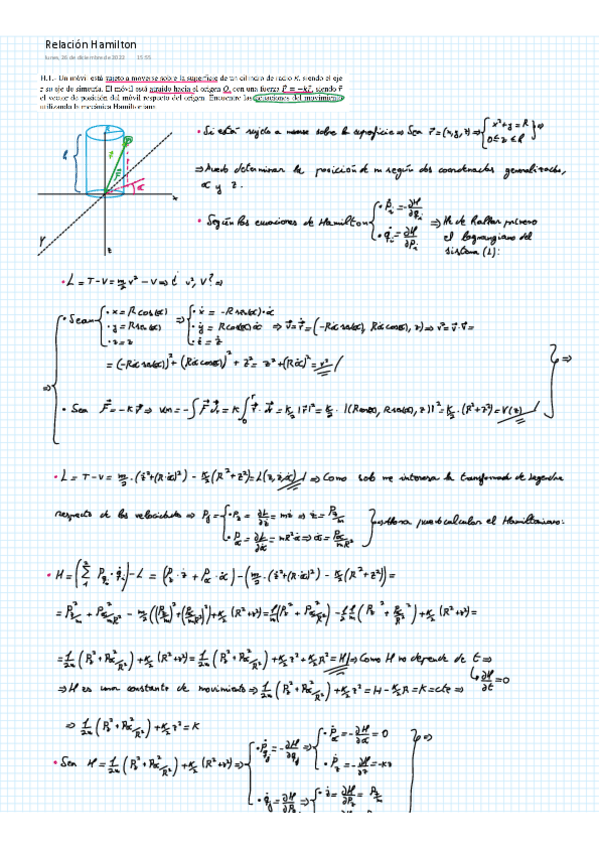 Relación Hamilton
lunes, 26 de diciembre de 2022 15:55
H.1.- Un móvil está sujeto a moverse sobre la superficie de un cilindro de radio R, siendo el eje
z su eje de simetría. El móvil está atraído hacia el origen O, con una fuerza F⃗ = -kr⃗, siendo r⃗
el vector de posición del móvil respecto del origen. Encuentre las ecuaciones del movimiento
utilizando la mecánica Hamiltoniana
• Si está sujeto a moverse sobre la superficie ⇒ Sea r⃗ = (x,y,z) ⇒ { x²+y = R
0 ≤ z ≤ l ⇒
⇒ Puedo determinar la posición de m según dos coordenadas generalizadas,
α y z.
• Según las ecuaciones de Hamilton { • Ṗi = -∂H/∂qi
• q̇i = ∂H/∂Pi ⇒ Ha de hallar primero
el lagrangiano del
sistema (L):
l
r
α
x
y
z
• L = T - V = m/2 v² - V ⇒ ¿ v², V? ⇒
• Sean { • x = R cos(α)
• y = R sen(α)
• z = z ⇒ { • ẋ = -R sen(α)·α̇
• ẏ = R cos(α) α̇
• ż = ż ⇒ v⃗ = (-Rα̇ sen(α), Rα̇ cos(α), ż) ⇒ v² = v⃗·v⃗ =
= (-Rα̇ sen(α))² + (Rα̇ cos(α))² + ż² = ż² + (Rα̇)² = v²
• Sea F⃗ = -K r⃗ ⇒ V(r) = -∫F⃗ dr⃗ = K ∫ r⃗·dr⃗ = K/2 |r⃗|² = K/2 · |(R cos(α), R sen(α), z)|² = K/2 · (R²+z²) = V(z)
• L = T - V = m/2 · (ż²+(R·α̇)²) - K/2 (R²+z²) = L(z, ż, α̇) ⇒ Como solo me interesa la transformada de Legendre
respecto de las velocidades ⇒ Pj = { • Pz = ∂L/∂ż = mż ⇒ ż = Pz/m
• Pα = ∂L/∂α̇ = mR²α̇ ⇒ α̇ = Pα/mR² } ⇒ Ahora puedo calcular el Hamiltoniano:
• H = (Σ Pqi · q̇i) - L = (Pz · ż + Pα · α̇) - (m/2 · (ż²+(Rα̇)²) - K/2 (R²+z²)) =
= Pz²/m + Pα²/mR² - m/2 ((Pz/m)² + (Pα/mR)²) + K/2 (R²+z²) = 1/m (Pz² + Pα²/R²) - 1/2 1/m (Pz² + Pα²/R²) + K/2 (R²+z²) =
= 1/2m (Pz² + Pα²/R²) + K/2 (R²+z²) = 1/2m (Pz² + Pα²/R²) + K/2 z² + K/2 R² = H ⇒ Como H no depende de t ⇒
∂H/∂t = 0
⇒ H es una constante de movimiento ⇒ 1/2m (Pz² + Pα²/R²) + K/2 z² = H - K/2 R = K = cte ⇒
⇒ 1/2m (Pz² + Pα²/R²) + K/2 z² = K
• Sea H = 1/2m (Pz² + Pα²/R²) + K/2 (R²+z²) ⇒ { • Ṗqj = -∂H/∂qj ⇒ { • Ṗα = -∂H/∂α = 0
• Ṗz = -∂H/∂z = -Kz
• q̇j = ∂H/∂Pj ⇒ { • ż = ∂H/∂Pz = Pz/m